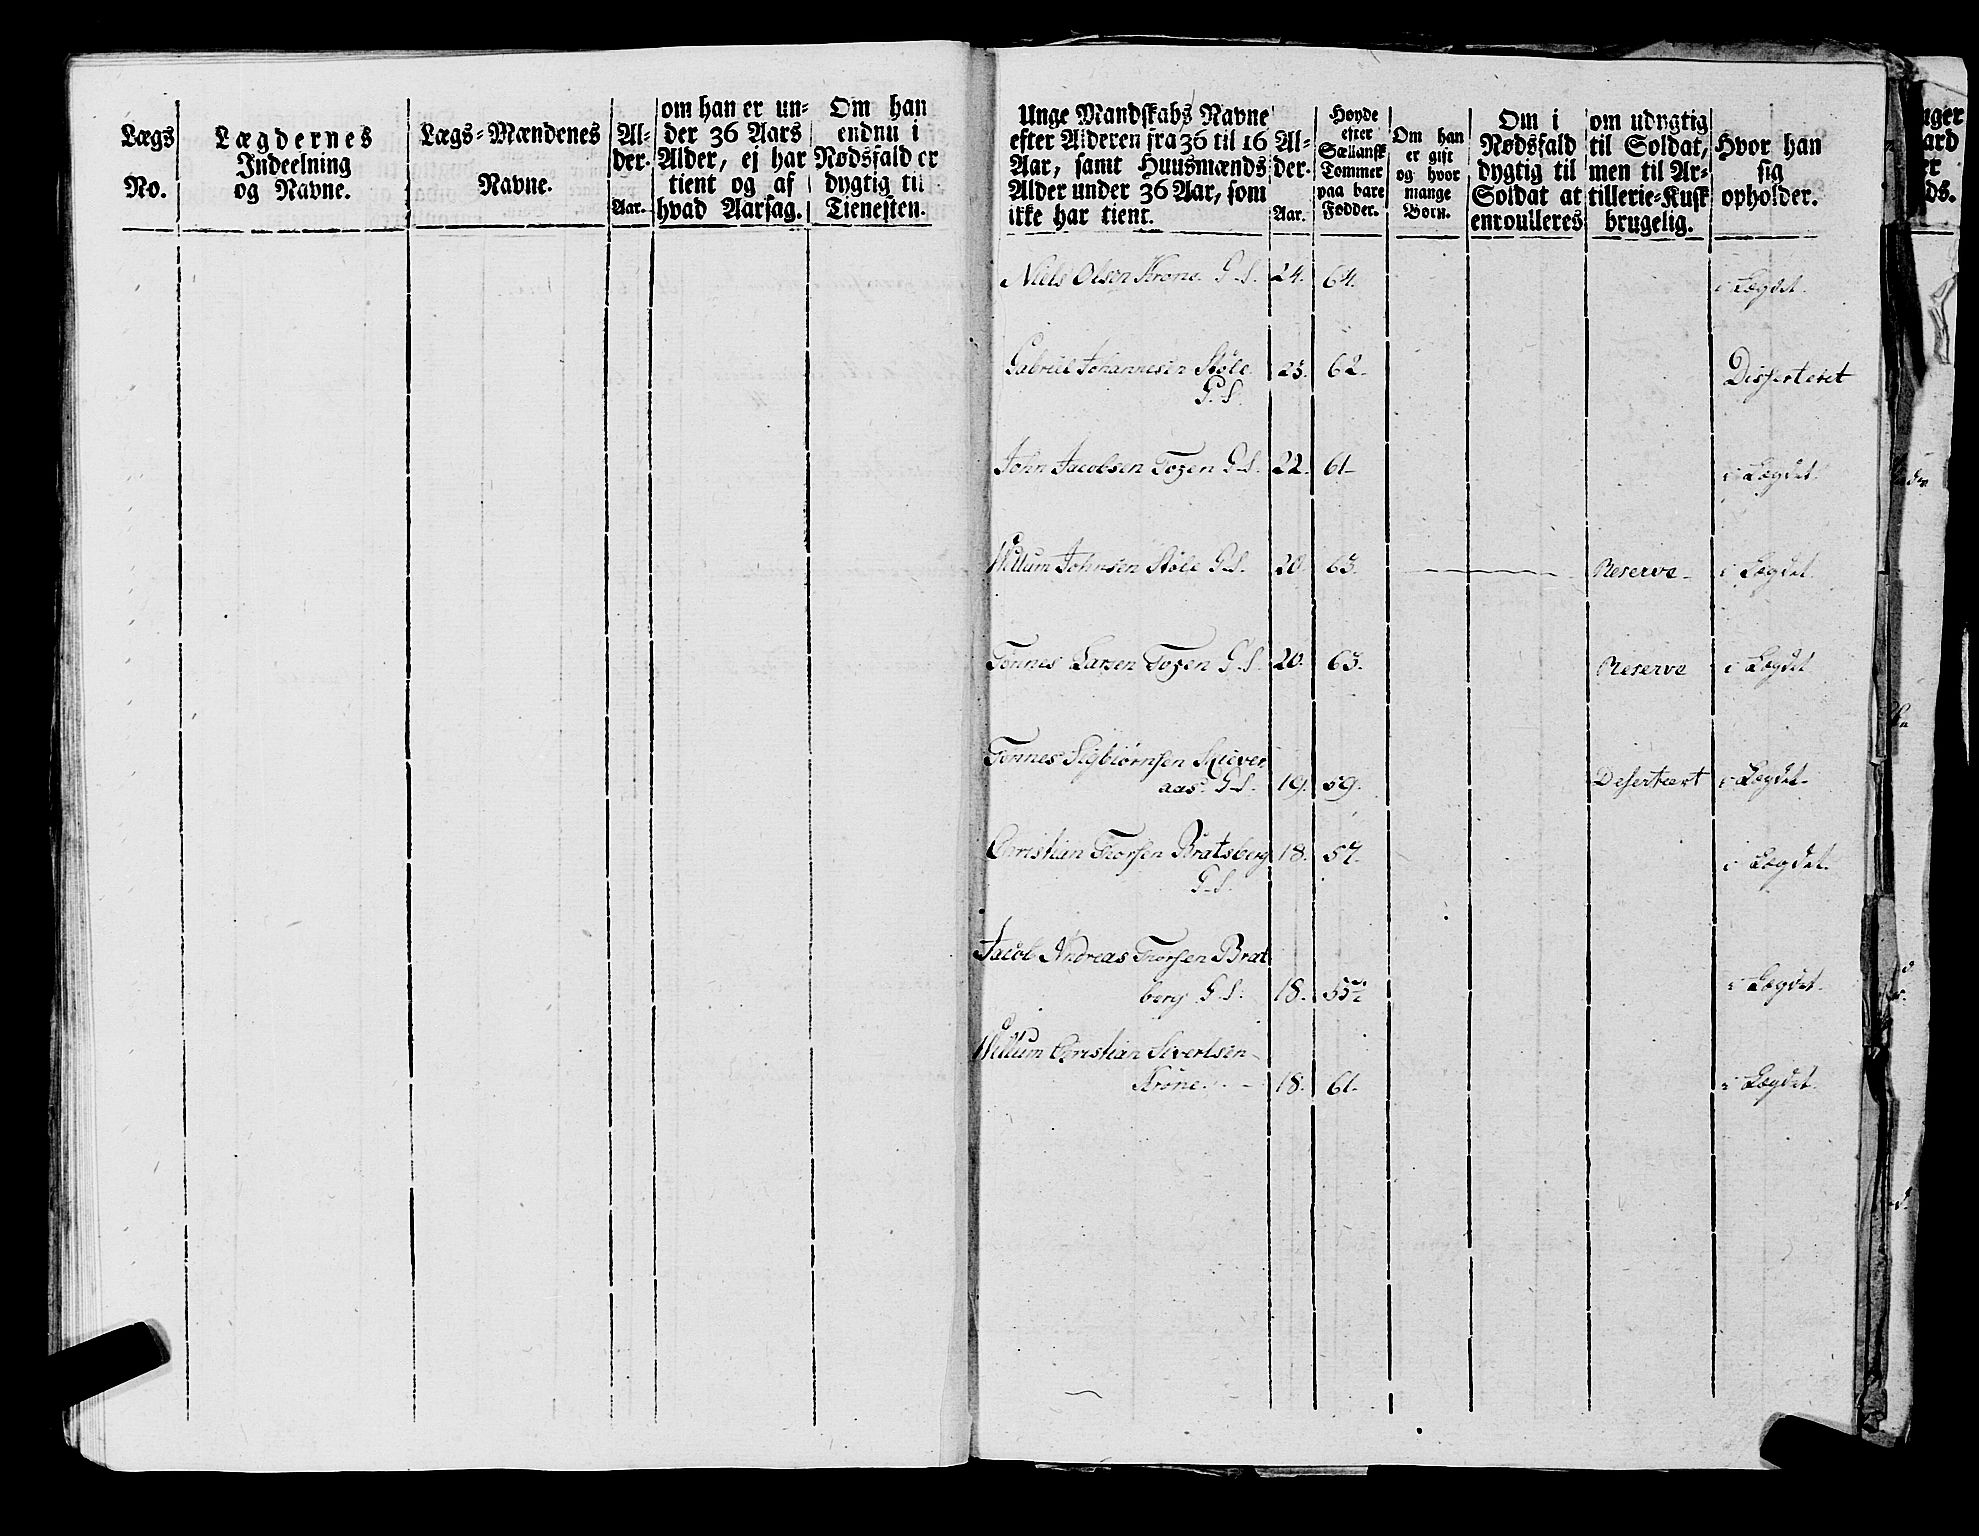 Lægs
No.
Lægdernes
Indeelning
og Navne.
Lægs-Mændenes
Navne.
Al-
der.
Aar.
om han er un-
der 36 Aars
Alder, ej har
tient og af
hvad Aarsag.
Om han
endnu i
Nødsfald er
dygtig til
Tienesten.
Unge Mandskabs Navne
efter Alderen fra 36 til 16
Aar, samt Huusmænds
Alder under 36 Aar, som
ikke har tient.
Al-
der.
Aar.
Høyde
efter
Sællansk
Tommer
paa bare
Fødder.
Om han
er gift
og hvor
mange
Børn.
Om i
Nødsfald
dygtig til
Soldat at
enroulleres
om udygtig
til Soldat,
men til Ar-
tillerie-Kusk
brugelig.
Hvor han
sig
opholder.
Niels Olsen Krone G.S. 24. 64. i Lægdet.
Gabriel Johannesen Støle 23. 62. Disserteret
G.S.
John Jacobsen Tozen G.S. 22. 61. i Lægdet.
Willum Johnsen Støle G.S. 20. 63. Reserve i Lægdet.
Tønnes Larsen Tozen G.S. 20. 63. Reserve i Lægdet
Tønnes Sigbiørnsen Skiever
aas. G.S. 19. 59. Deserteert i Lægdet.
Christian Thorsen Bratsberg 18. 57. i Lægdet.
G.S.
Jacob Andreas Thorsen Brat
berg G.S. 18. 55½ i Lægdet.
Willum Christian Sivertsen
Krone. 18. 61. i Lægdet.